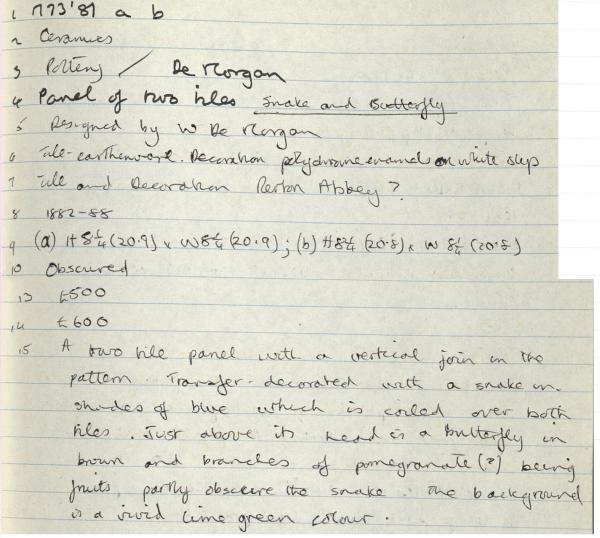 1 M73'87 a b
2 Ceramics
3 Pottery / De Morgan
4 Panel of two tiles Snake and Butterfly
5 Designed by W De Morgan
6 Tile-earthenware. Decoration polychrome enamels on white slip
7 Tile and Decoration Merton Abbey?
8 1882-88
9 (a) H 8¼ (20.9) x W 8¼ (20.9) ; (b) H 8¼ (20.8) x W 8¼ (20.8)
10 Obscured
13 £500
14 £600
15 A two tile panel with a vertical join in the
pattern. Transfer-decorated with a snake in
shades of blue which is coiled over both
tiles. Just above its head is a butterfly in
brown and branches of pomegranate (?) being
fruits, partly obscure the snake. The background
is a vivid lime green colour.